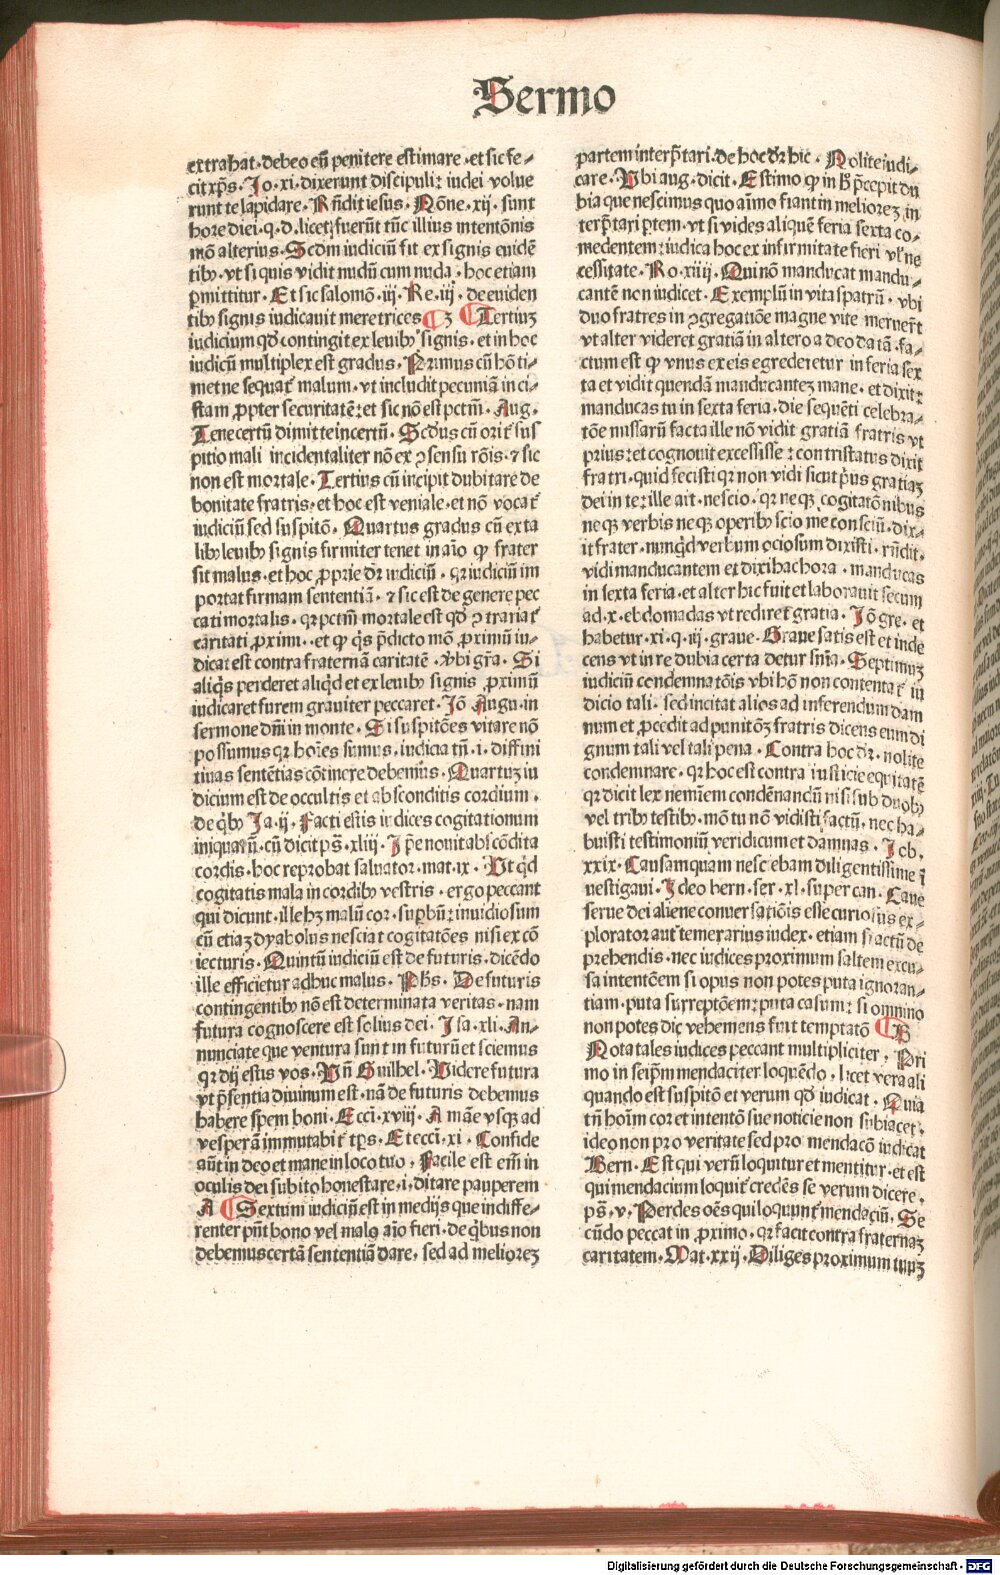 Sermo
extrahat·debeo eū penitere estimare·et sic fe⸗
cit xp̄s·Jo·xi·dixerunt discipuli: iudei volue
runt te lapidare·Rn̄dit iesus·Nōne·xij·sunt
hore diei·q·d·licet fuerūt tūc illius intentōnis
mō alterius·Scḋm iudiciū fit ex signis euidē
tibꝰ·vt si quis vidit nudū cum nuda·hoc etiam
ꝑmittitur·Et sic salomō·iij·Re·iij·de euiden
tibꝰ signis iudicauit meretrices Tertiuꝫ
iudicium qḋ contingit ex leuibꝰ signis·et in hoc
iudiciū multiplex est gradus·Primus cū hō ti⸗
met ne sequat̄ malum·vt includit pecuniā in ci⸗
stam ꝓpter securitatē: et sic nō est pctm̄·Aug·
Tene certū dimitte incertū·Scḋus cū orit̄ sus
pitio mali incidentaliter nō ex ꝯsensu rōis·⁊ sic
non est mortale·Tertius cū incipit dubitare de
bonitate fratris·et hoc est veniale·et nō vocat̄
iudiciū sed suspitō·Quartus gradus cū ex ta
libꝰ leuibꝰ signis firmiter tenet in aīo ꝙ frater
sit malus·et hoc ꝓprie dr̄ iudiciū·qr iudiciū im
portat firmam sententiā·⁊ sic est de genere pec
cati mortalis·qr pctm̄ mortale est qḋ ꝯtrariat̄
caritati ꝓximi·et ꝙ q̄s p̄dicto mō ꝓximū iu⸗
dicat est contra fraternā caritatē·vbi gr̄a·Si
aliq̄s perderet aliq̇d et ex leuibꝰ signis ꝓximū
iudicaret furem grauiter peccaret·Jō Augu·in
sermone dn̄i in monte·Si suspitōes vitare nō
possumus qr hoīes sumus·iudicia tn̄·i·diffini
tiuas sentētias cōtinere debemus·Quartuꝫ iu
dicium est de occultis et absconditis cordium·
de q̇bꝰ Ja·ij·Facti estis iudices cogitationum
iniquaꝝ·cū dicit ps̄·xliii·Ip̄e nouit abscōdita
cordis·hoc reprobat saluator·mat·ix·Ut q̇d
cogitatis mala in cordibꝰ vestris·ergo peccant
qui dicunt·ille hꝫ malū cor·suꝑbū: inuidiosum
cū etiaꝫ dyabolus nesciat cogitatōes nisi ex cō
iecturis·Quintū iudiciū est de futuris·dicēdo
ille efficietur adhuc malus·Ph̄s·De futuris
contingentibꝰ nō est determinata veritas·nam
futura cognoscere est solius dei·Isa·xli·An⸗
nunciate que ventura sunt in futurū et sciemus
qr dij estis vos·Un̄ Guilhel·Videre futura
vt p̄sentia diuinum est·nā de futuris debemus
habere spem boni·Ecci·xviij·A mane vsqꝫ ad
vesperā immutabit̄ tp̄s·Et ecci·xi·Confide
aūt in deo et mane in loco tuo·Facile est em̄ in
oculis dei subito honestare·i·ditare pauperem
A Sextum iudiciū est in medijs que indiffe⸗
renter pn̄t bono vel malo aīo fieri·de q̇bus non
debemus certā sententiā dare, sed ad melioreꝫ
partem interp̄tari·de hoc dr̄ hic·Nolite iudi⸗
care·Ubi aug·dicit·Estimo ꝙ in h̄ p̄cepit du
bia que nescimus quo aīmo fiant in melioreꝫ in
terp̄tari ꝑtem·vt si vides aliquē feria sexta co⸗
medentem: iudica hoc ex infirmitate fieri vl̓ ne
cessitate·Ro·xiiij·Qui nō manducat mandu⸗
cantē non iudicet·Exemplū in vitaspatrū·vbi
duo fratres in ꝯgregatiōe magne vite meruer̄t
vt alter videret gratiā in altero a deo datā·fa⸗
ctum est ꝙ vnus ex eis egrederetur in feria sex
ta et vidit quendā manducanteꝫ mane·et dixit:
manducas tu in sexta feria·die sequēti celebra⸗
tōe missarū facta ille nō vidit gratiā fratris vt
prius: et cognouit excessisse: contristatus dixit
fratri·quid fecisti qr non vidi sicut p̄us gratiaꝫ
dei in te: ille ait·nescio·qr neqꝫ cogitatōnibus
neqꝫ verbis neqꝫ operibꝰ scio me conscīu·dix⸗
it frater·nunq̇d verbum ociosum dixisti·rn̄dit·
vidi manducantem et dixi hac hora·manducas
in sexta feria·et alter hic fuit et laborauit secum
ad·x·ebdomadas vt rediret gratia·Jō gre·et
habetur·xi·q·iij·graue·Graue satis est et inde
cens vt in re dubia certa detur sn̄ia·Septimuꝫ
iudiciū condemnatōis vbi hō non contentat̄ iu
dicio tali·sed incitat alios ad inferendum dam
num et ꝓcedit ad punitōꝫ fratris dicens eum di
gnum tali vel tali pena·Contra hoc dr̄·nolite
condemnare·qr hoc est contra iusticie equitatē
qr dicit lex neminem condēnandū nisi sub duobꝰ
vel tribꝰ testibꝰ·mō tu nō vidisti factū·nec ha⸗
buisti testimoniū veridicum et damnas·Job·
xxix·Causam quam nesciebam diligentissime ī
uestigaui·Ideo bern·ser·xl·super can·Caue
serue dei aliene conuersatiōis esse curiosus ex⸗
plorator aut temerarius iudex·etiam si actū de
prehendis·nec iudices proximum saltem excu⸗
sa intentōem si opus non potes puta ignoran⸗
tiam·puta surreptōem: puta casum: si omnino
non potes dic vehemens fuit temptatō B
Nota tales iudices peccant multipliciter·Pri
mo in seip̄m mendaciter loquēdo·licet vera ali
quando est suspitō et verum qḋ iudicat·Quia
tn̄ hoīm cor et intentō sue noticie non subiacet·
ideo non pro veritate sed pro mendacō iudicat
Bern·Est qui verū loquitur et mentitur·et est
qui mendacium loquit̄ credēs se verum dicere·
ps̄·v·Perdes oēs qui loquunt̄ mendaciū·Se
cūdo peccat in ꝓximo·qr facit contra fraternaꝫ
caritatem·Mat·xxij·Diliges proximum tuuꝫ
Digitalisierung gefördert durch die Deutsche Forschungsgemeinschaft - DFG